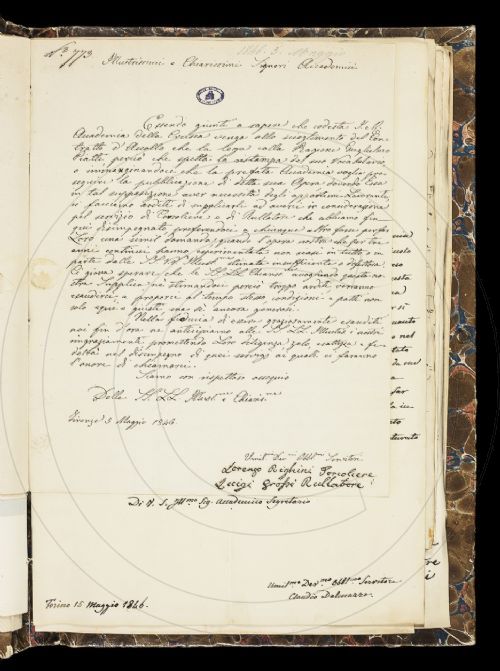 N.° 773
1846. 5. Maggio
Illustrissimi e Chiarissimi Signori Accademici
Essendo giunti a sapere che codesta I. e R.
Accademia della Crusca venga allo scioglimento del Con-
tratto d'Accollo che la lega colla Ragione Guglielmo
Piatti, perciò che spetta la ristampa del suo Vocabolario,
o immaginandoci che la prefata Accademia voglia pro-
seguire la pubblicazione di detta sua Opera dovendo Essa
in tal supposizione aver necessità degli opportuni Lavoranti,
ci facciamo arditi di supplicarla ad averci in considerazione
pel servizio di Torcoliere e di Rullatore che abbiamo fin
qui disimpegnato preferendoci a chiunque altro fosse per far
Loro una simil domanda, quando l'opera nostra che per tre
anni continui hanno esperimentata non siasi in tutto o in
parte dalle LL. SS. Illust. stimata insufficiente o difettosa.
Ci giova sperare che le SS. LL. Chiariss. accogliendo questa no-
stra Supplica nè stimandoci perciò troppo arditi vorranno
esaudirci, e proporci al tempo stesso condizioni e patti non
solo equi e giusti ma di ancora generosi.
Nella fiducia di esser graziosamente esauditi
noi fin d'ora ne anticipiamo alle SS. LL. Illust. i nostri
ringraziamenti promettendo Loro diligenza, zelo, esattezza e fe-
deltà nel disimpegno di quei servigi ai quali ci faranno
l'onore di chiamarci.
Siamo con rispettoso ossequio
Delle SS. LL. Illust.me e Chiariss.me
Firenze 5 Maggio 1846.
Umil.mi Dev.mi Obbl.mi Servitori
Lorenzo Righini Torcoliere
Luigi Grossi Rullatore
Di V. S. Ill.ma Sig. Accademico Segretario
Umil.mo Dev.mo Obbl.mo Servitore
Claudio Dalmazzo.
Torino 15 Maggio 1846.